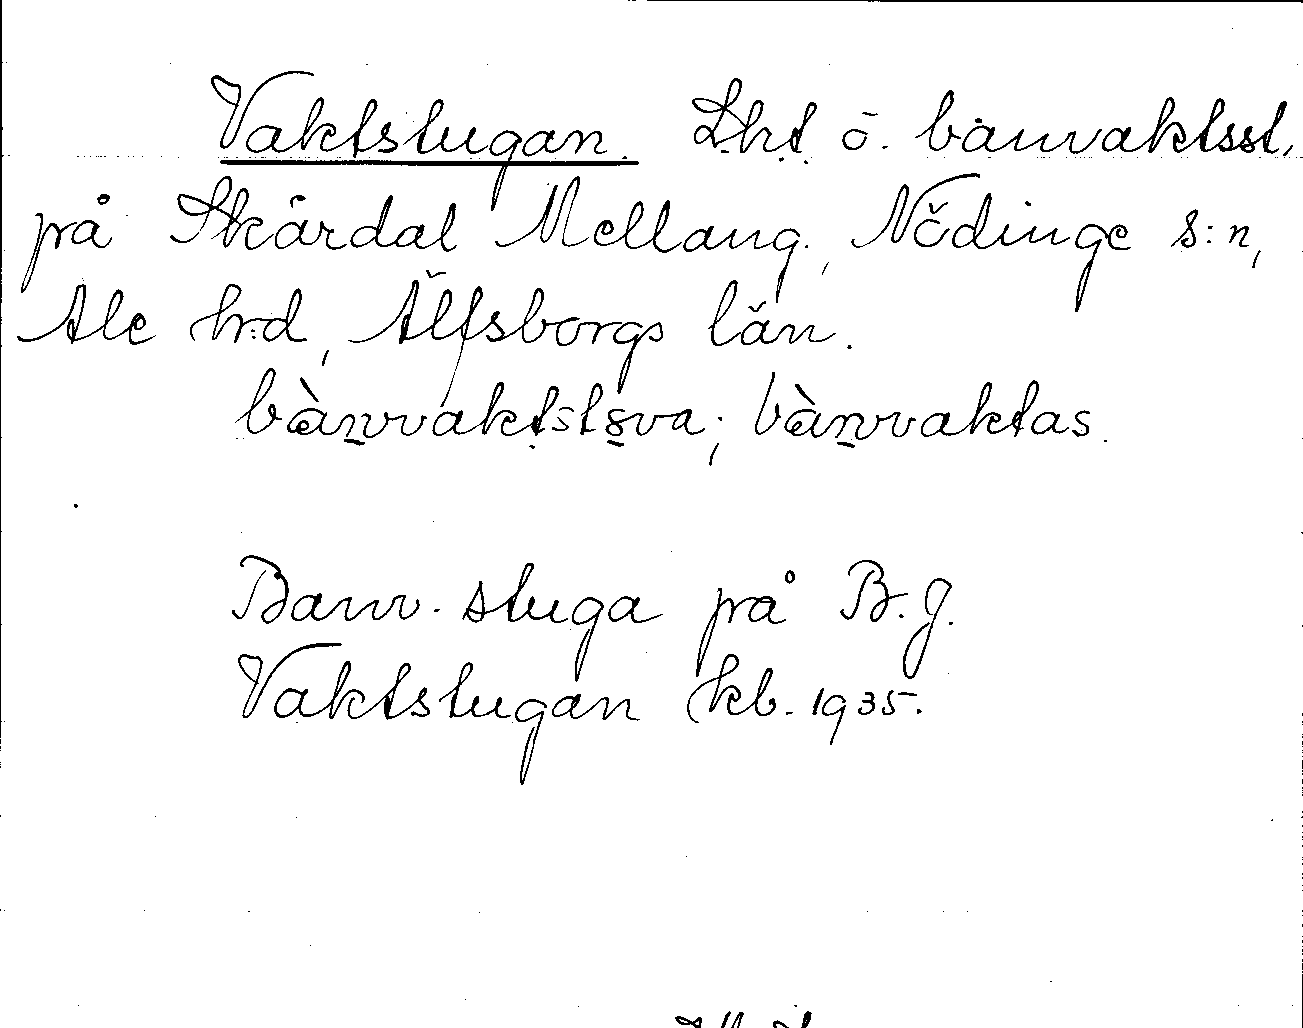 Vaktstugan. Lht. o. banvaktsst.
på Skårdal Mellang., Nödinge s:n,
Ale h:d, Älfsborgs län.
bànvaktstsva; bànvaktas.
Banv. stuga på B.J.
Vaktstugan kb. 1935.